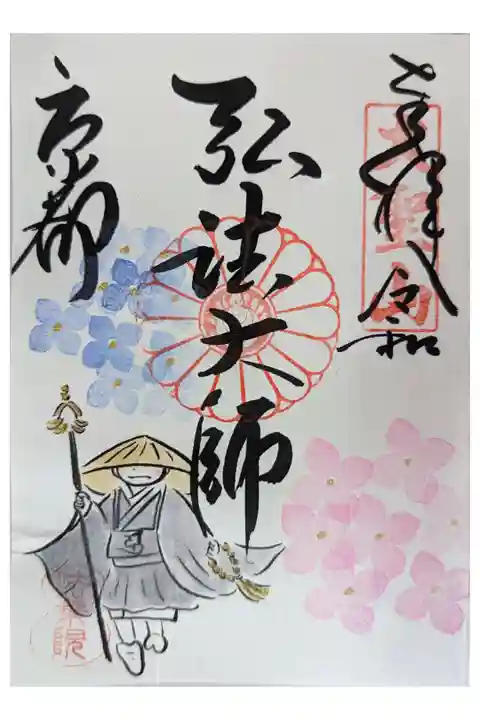 奉拝 令和
弘法大師
京都